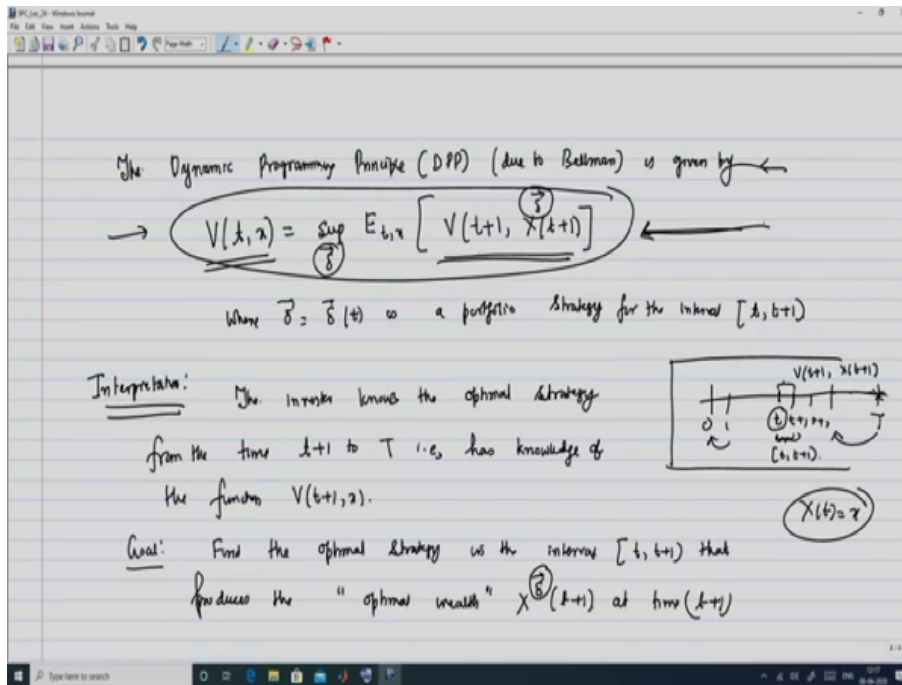 SPC_Lec_24 - Windows Journal
File Edit View Insert Actions Tools Help
Page Width
The Dynamic Programming Principle (DPP) (due to Bellman) is given by
V(t,x) = sup E_{t,x} [ V(t+1, X^{\vec{δ}}(t+1)) ]
\vec{δ}
where \vec{δ} = \vec{δ}(t) is a portfolio strategy for the interval [t, t+1)
Interpretation: The investor knows the optimal strategy
from the time t+1 to T i.e, has knowledge of
the function V(t+1,x).
V(t+1, X(t+1))
0 1 t t+1 T
[t, t+1).
X(t)=x
Goal: Find the optimal strategy in the interval [t, t+1) that
produces the "optimal wealth" X^{\vec{δ}}(t+1) at time (t+1)
Type here to search
12:17